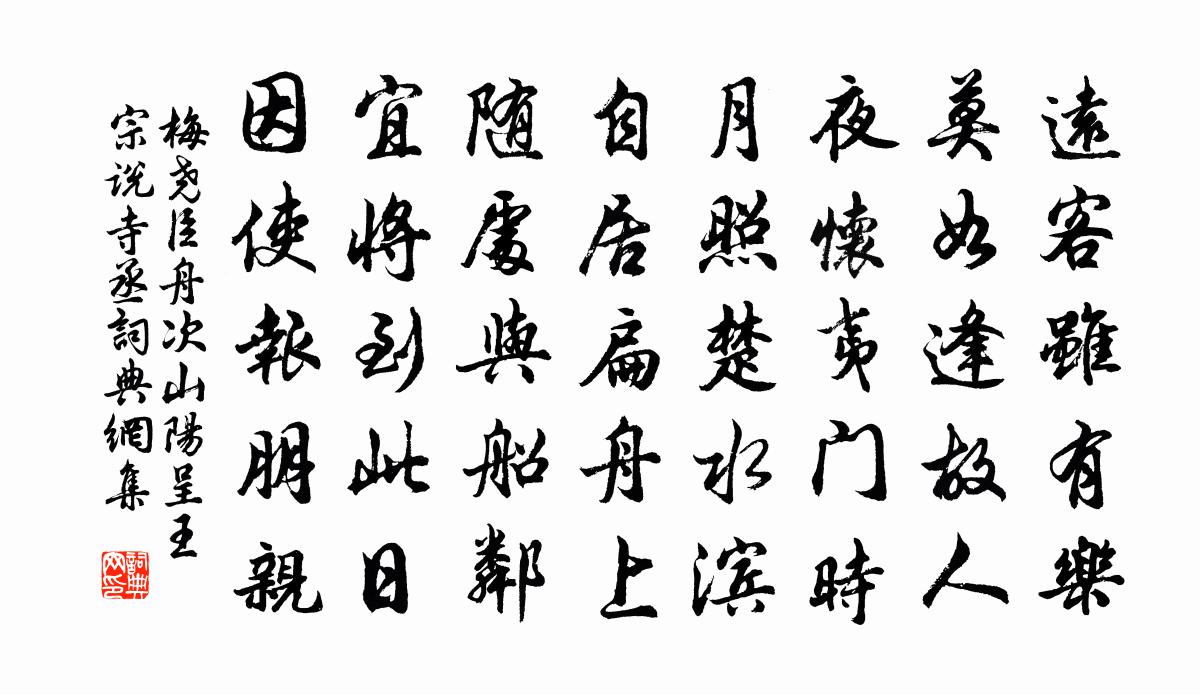 遠客雖有樂
莫如逢故人
夜懷夷门時
月照楚水滨
自居扁舟上
随處與船鄰
宜將到此日
因使報朋親
梅尧臣舟次山陽呈王
宗说寺丞詞典網集
詞典
网印